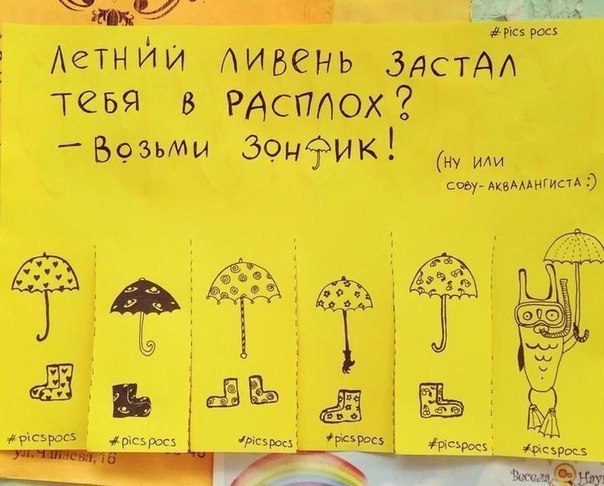 # pics pocs
Летний ливень застал
тебя в расплох?
– Возьми зонтик!
(ну или
сову-аквалангиста :)
#picspocs
#picspocs
#picspocs
#picspocs
#picspocs
#picspocs
ул. Чапаева, 16
Весела Нау